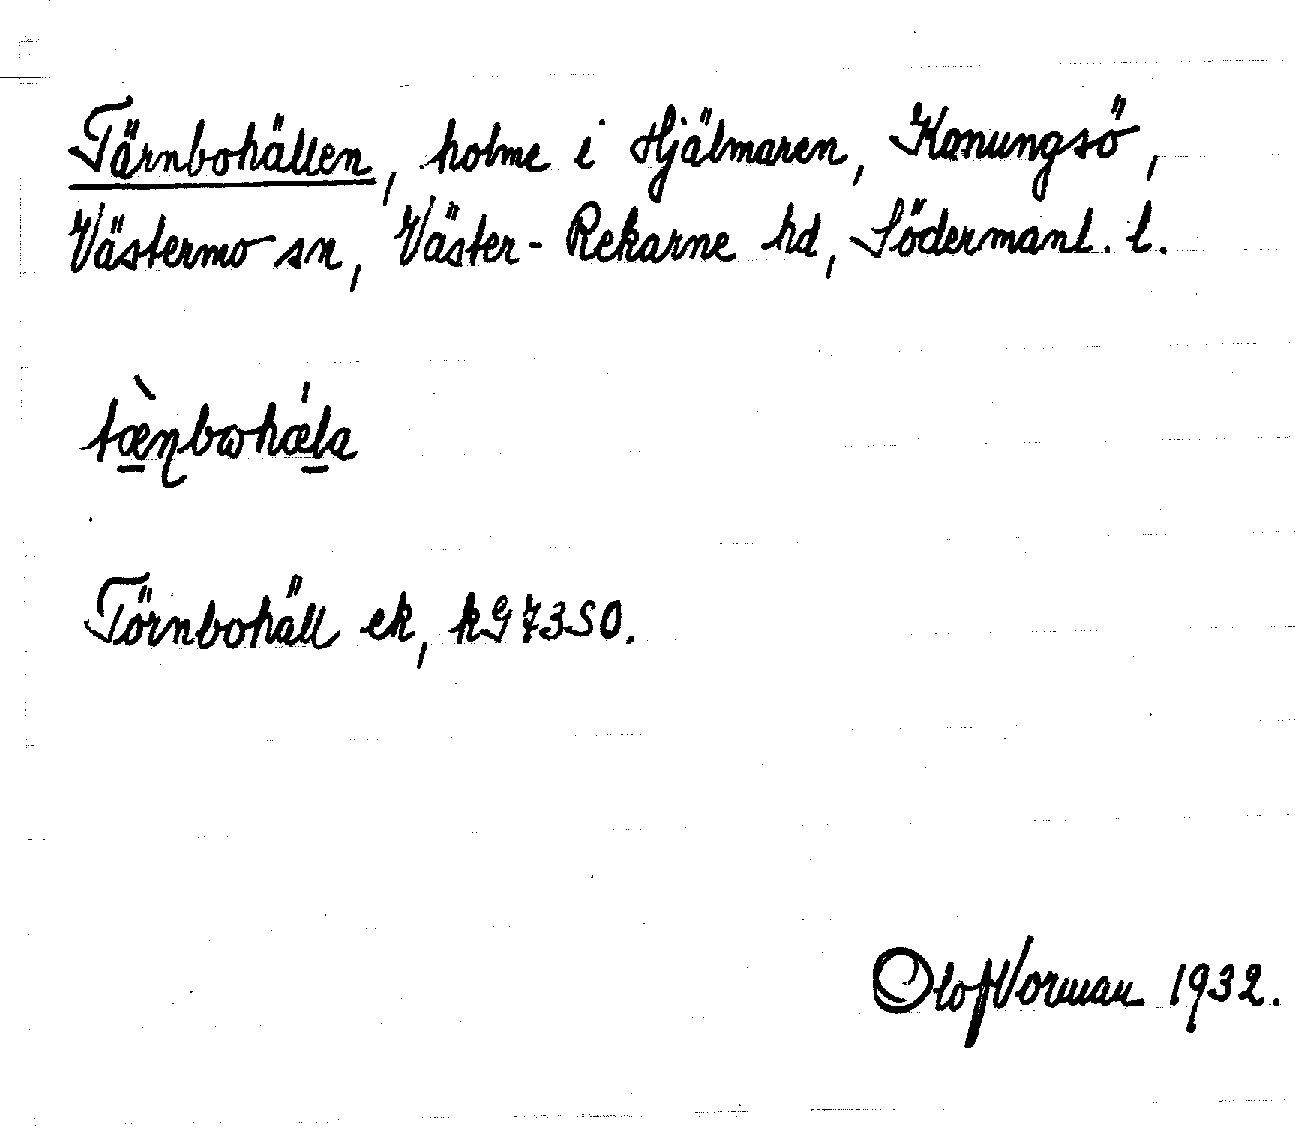 Tärnbohällen, holme i Hjälmaren, Konungsö,
Västermo sn, Väster-Rekarne hd, Södermanl. l.
tæ̀ɳbωhǽla
Törnbohäll ek, k97350.
Olof Norman 1932.